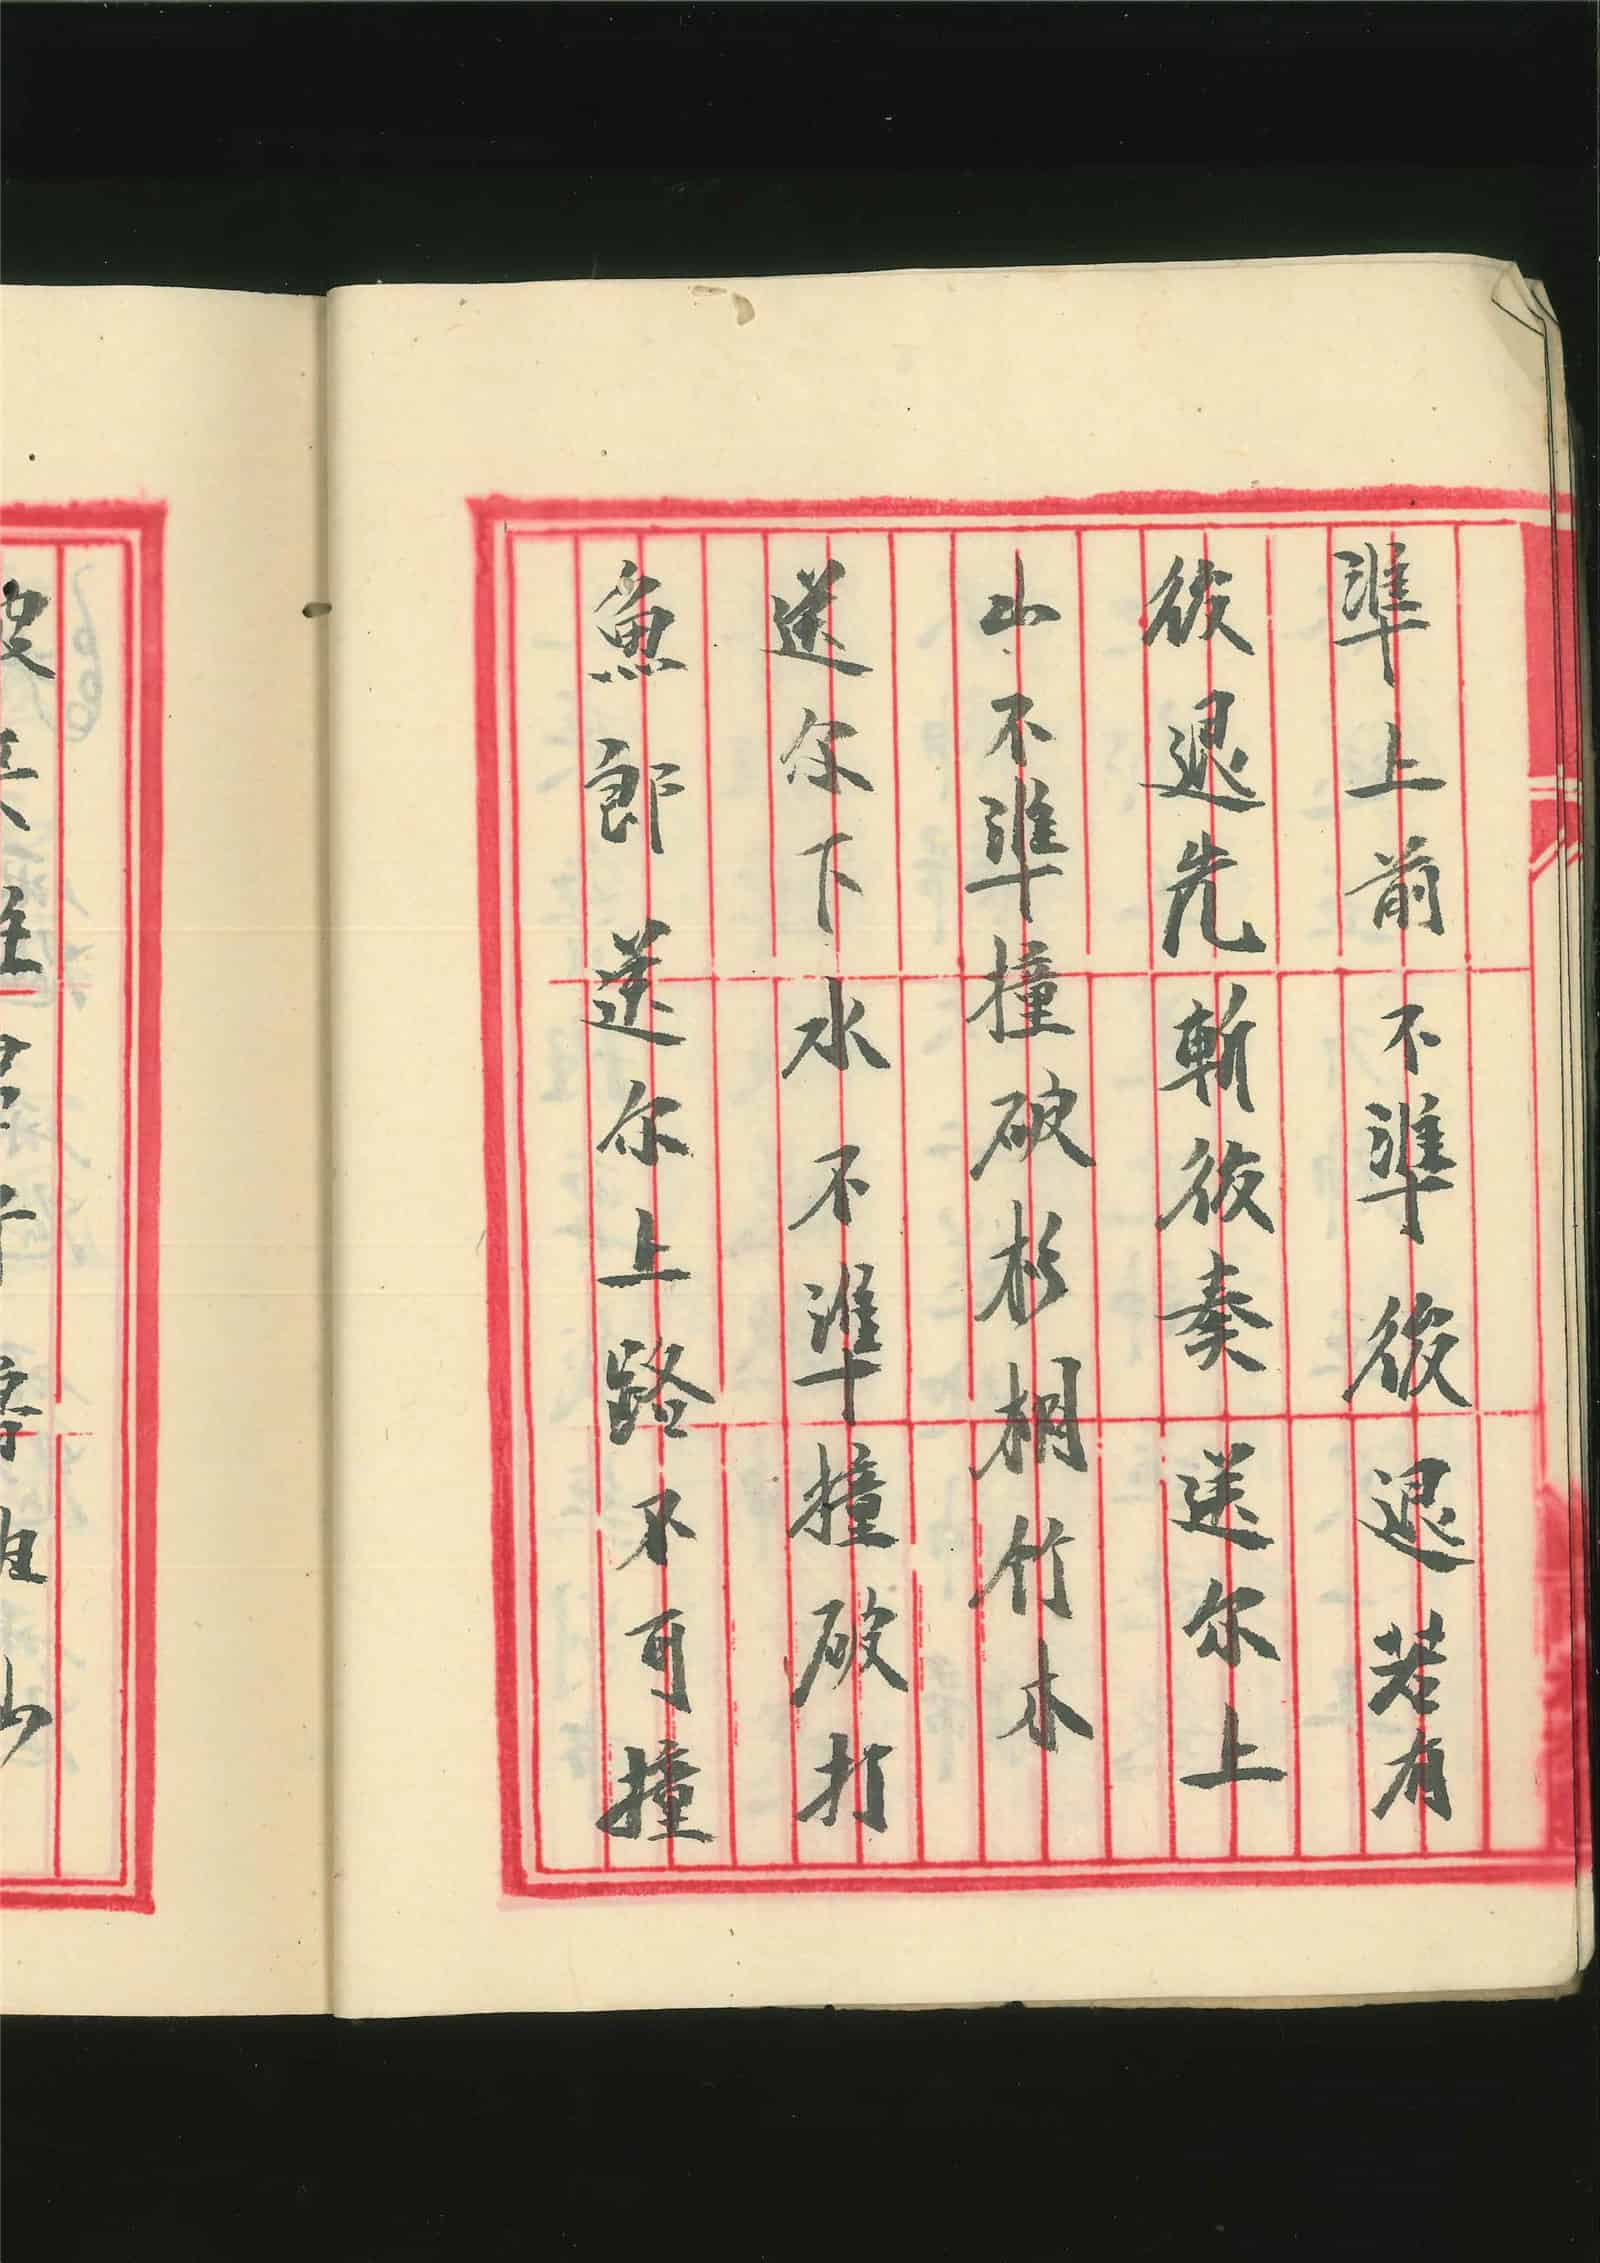 準上前不準後退若有
後退先斬後奏送尔上
山不準撞破杉桐竹木
送尔下水不準撞破打
魚郎送尔上路不可撞